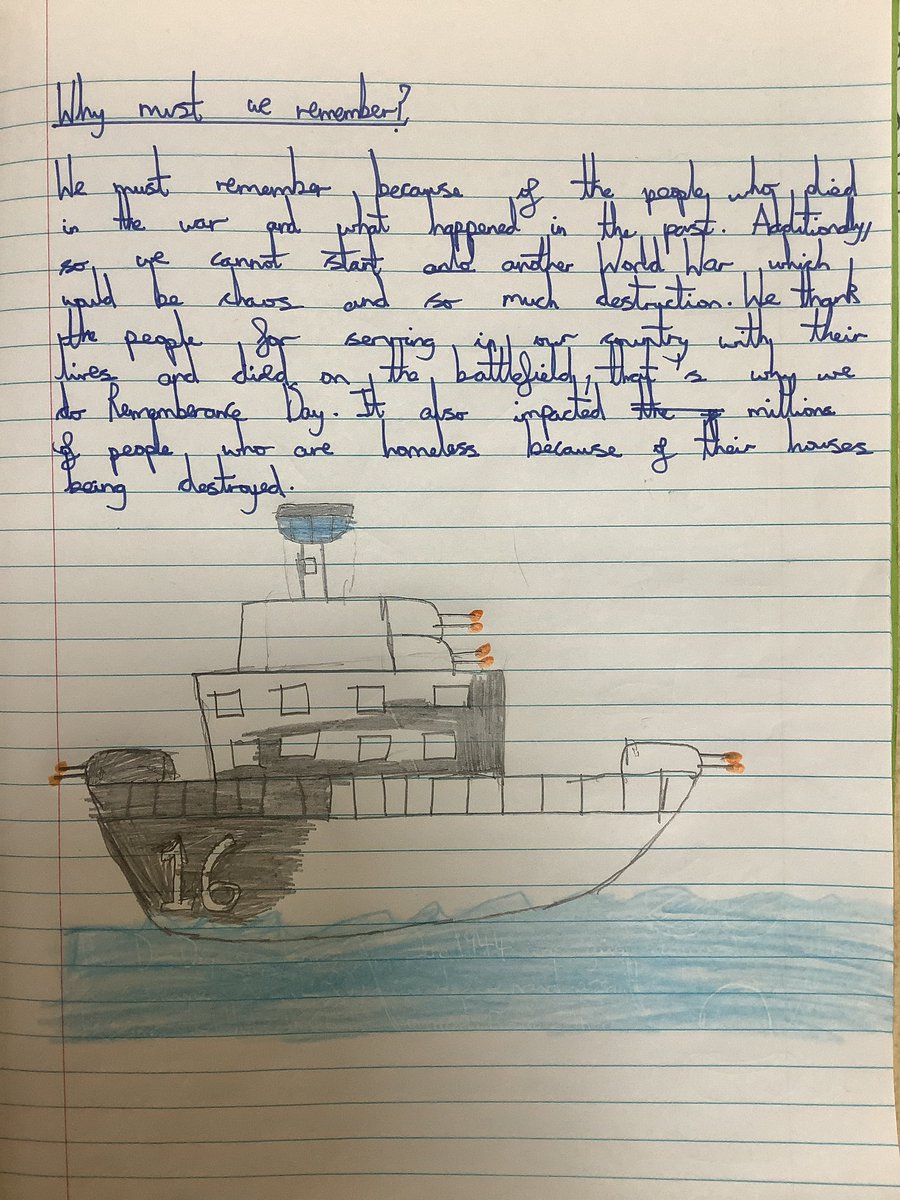 Why must we remember?
We must remember because of the people who died
in the war and what happened in the past. Additionally,
so we cannot start another World War which
would be chaos and so much destruction. We thank
the people for serving in our country with their
lives and died on the battlefield, that's why we
do Rememberance Day. It also impacted the millions
of people who are homeless because of their houses
being destroyed.
16
1944